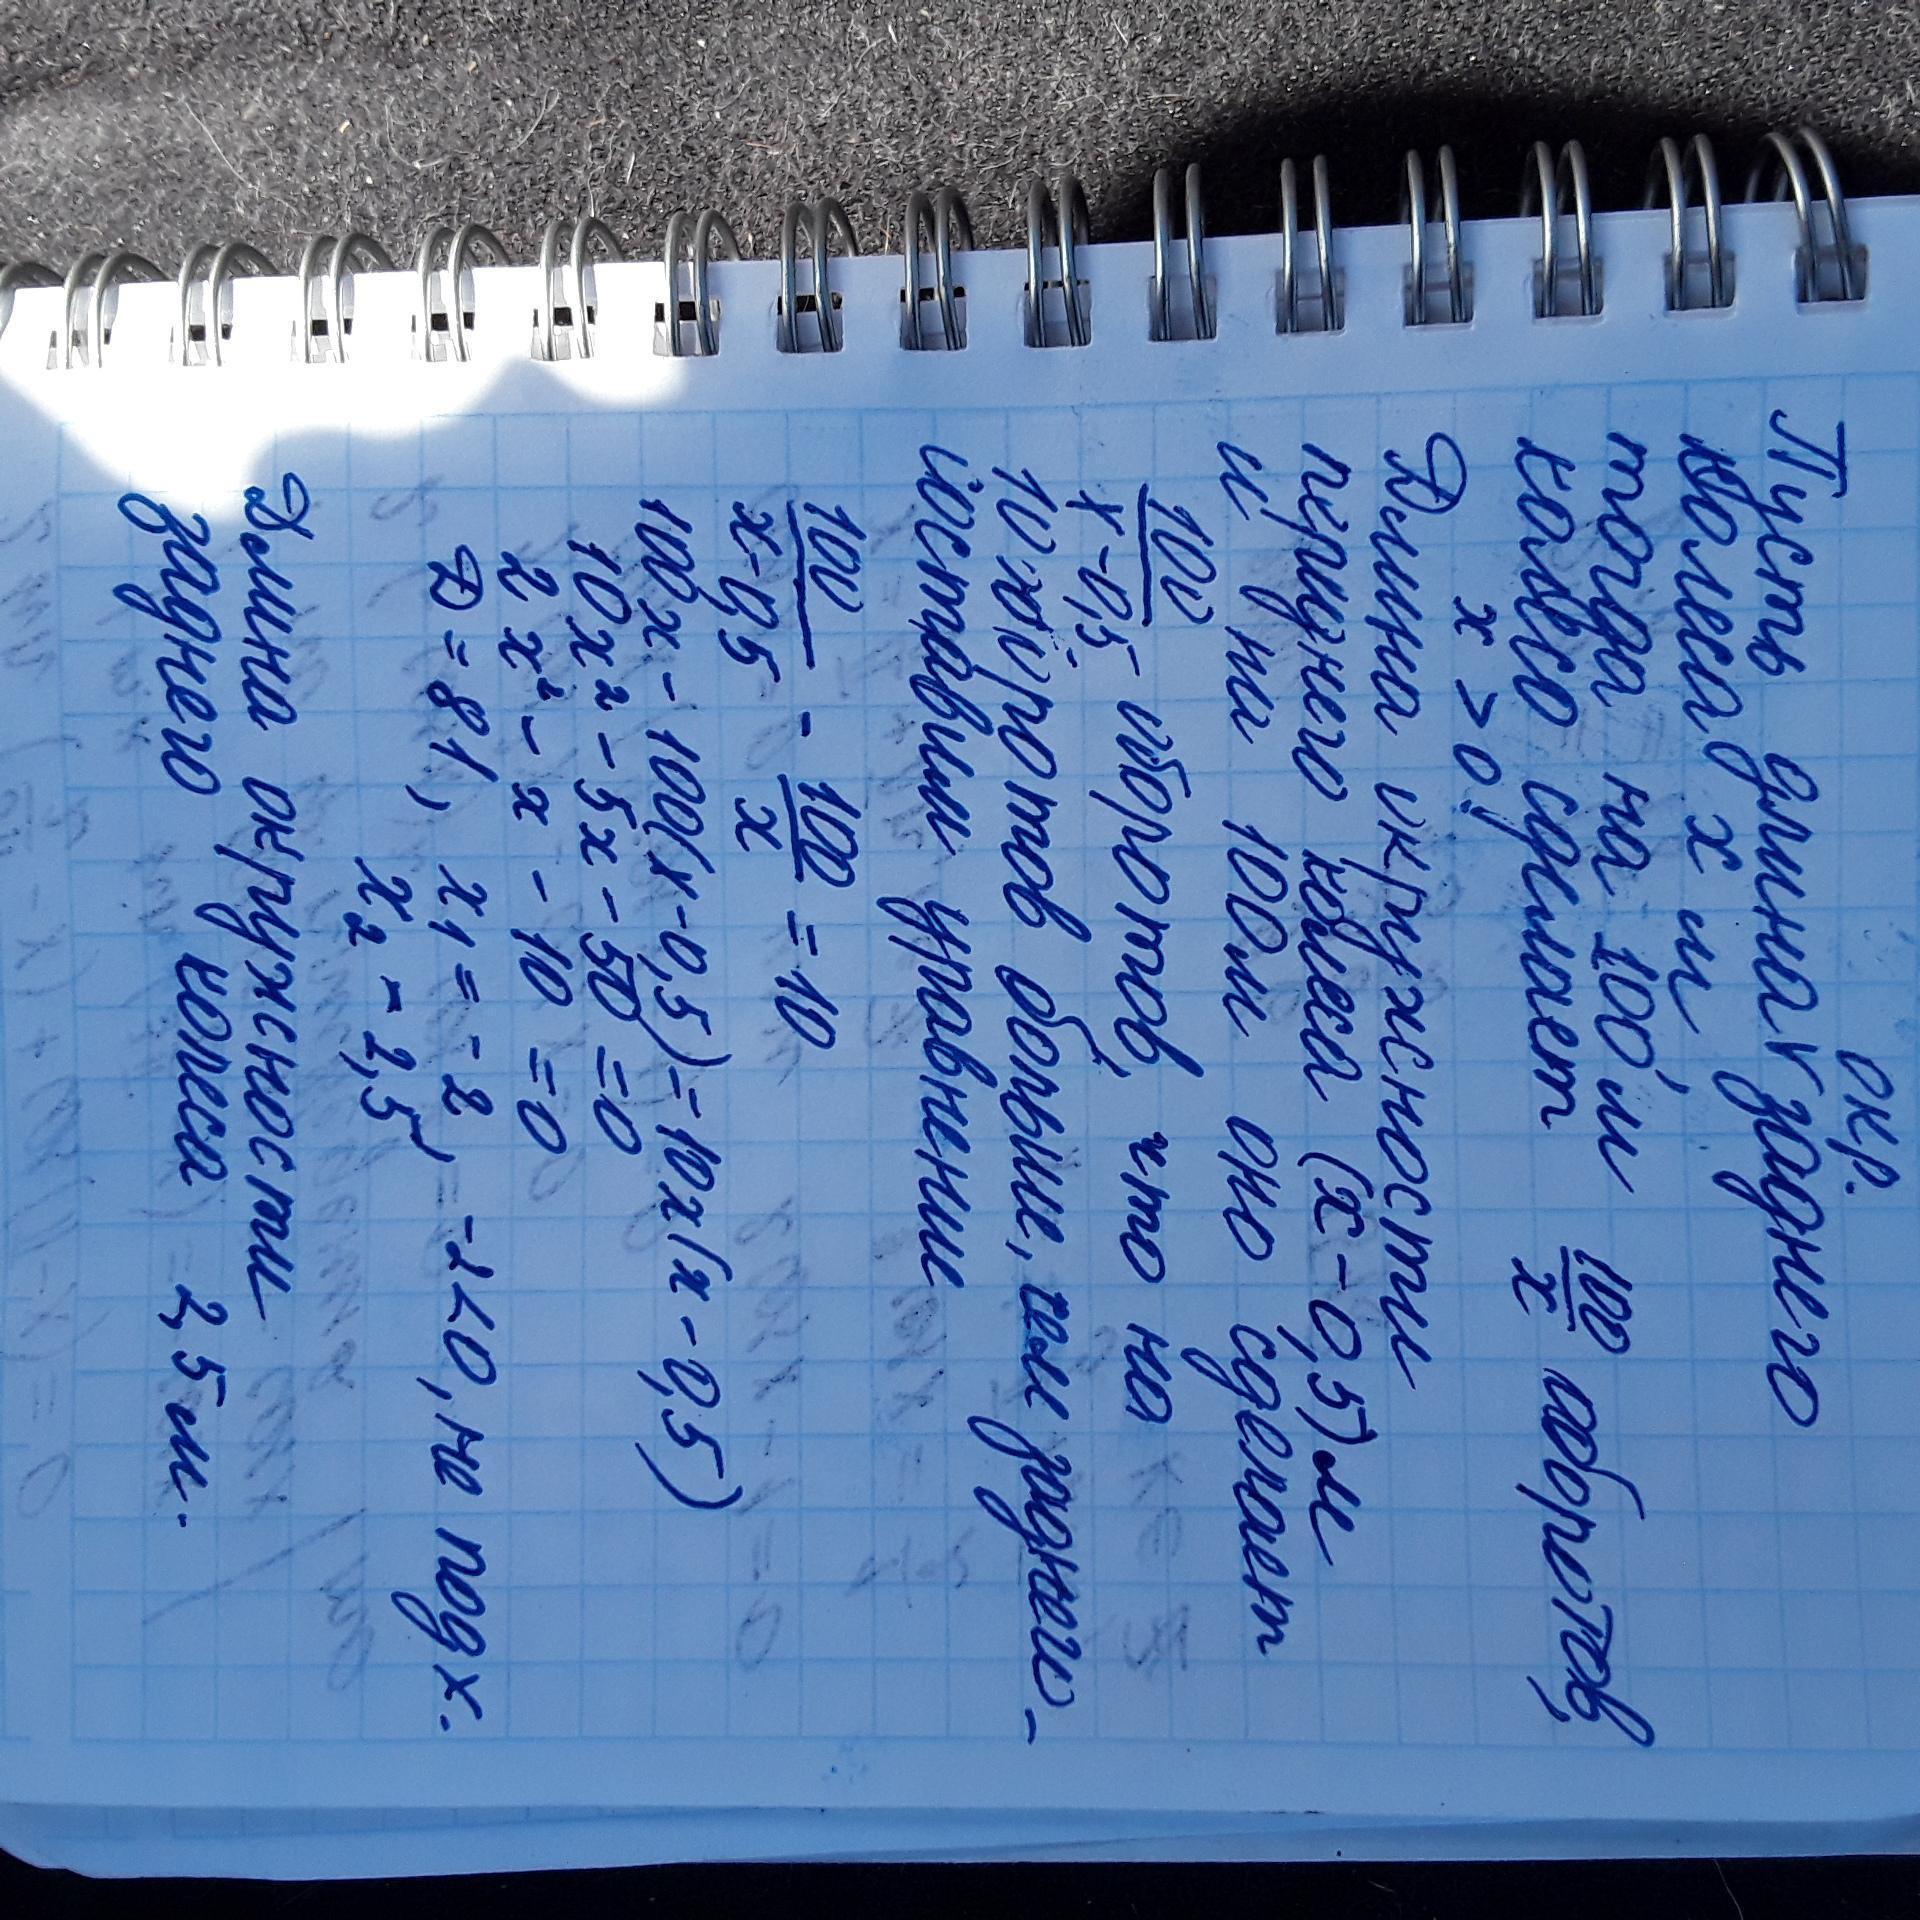 окр.
Пусть длина V заднего
колеса х м
тогда на 100 м
кольво сделает 100/x оборотов,
x > 0!
Длина окружности
переднего колеса (x - 0,5) м
и на 100м оно сделает
100/x-0,5 оборотов, что на
10 оборотов больше, чем заднего -
составим уравнение
100/x-0,5 - 100/x = 10
100x - 100(x-0,5) = 10x(x-0,5)
10x² - 5x - 50 = 0
2x² - x - 10 = 0
D = 81, x1 = -2, -2<0, не подх.
x2 = 2,5
Длина окружности
заднего колеса 2,5м.